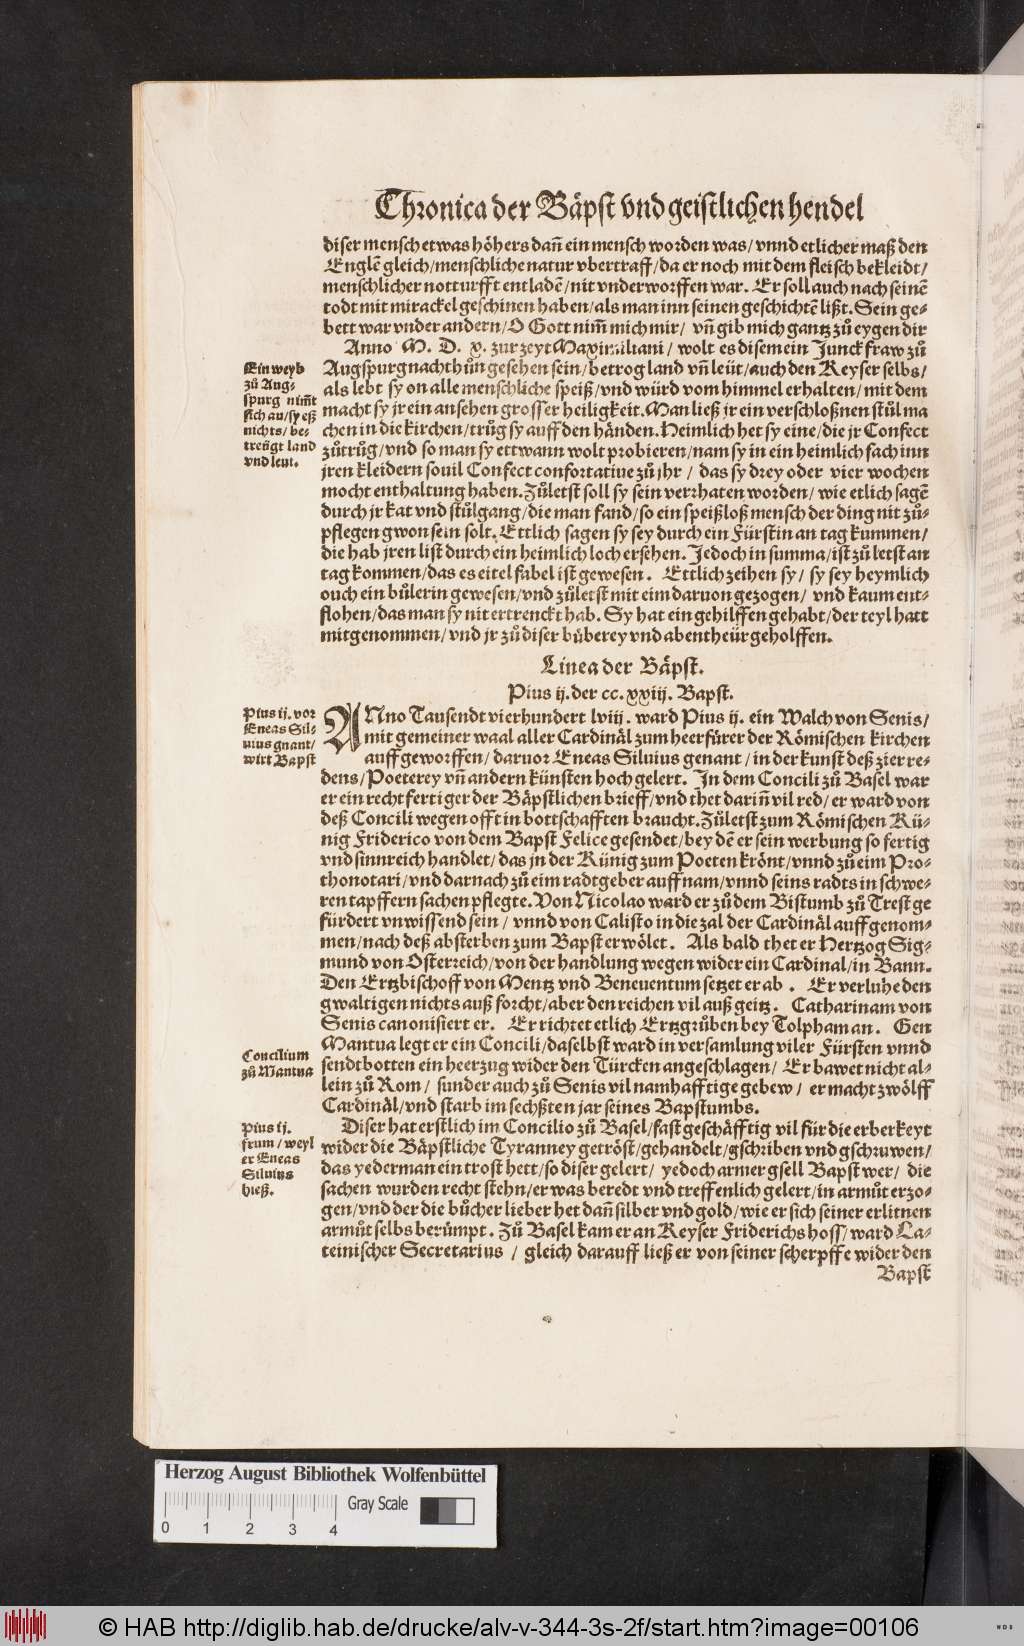 Chronica der Bäpst vnd geistlichen hendel
diser mensch etwas höhers dañ ein mensch worden was/ vnnd etlicher maß den
Englẽ gleich/menschliche natur vbertraff/da er noch mit dem fleisch bekleidt/
menschlicher notturfft entladẽ/nit vnderworffen war. Er soll auch nach seinẽ
todt mit mirackel geschinen haben/als man inn seinen geschichtẽ lißt. Sein ge-
bett war vnder andern/O Gott nim̃ mich mir/ vñ gib mich gantz zů eygen dir
Anno M. D. x. zur zeyt Maximiliani/ wolt es disem ein Junckfraw zů
Ein weyb
zů Aug-
spurg nim̃t
sich an/sy eß
nichts/ be-
treügt land
vnd leut.
Augspurg nachthůn gesehen sein/betrog land vñ leüt/auch den Keyser selbs/
als lebt sy on alle menschliche speiß/vnd würd vom himmel erhalten/mit dem
macht sy jr ein ansehen grosser heiligkeit. Man ließ jr ein verschloßnen stůl ma
chen in die kirchen/trůg sy auff den händen. Heimlich het sy eine/die jr Confect
zůtrůg/vnd so man sy ettwann wolt probieren/nam sy in ein heimlich sach inn
jren kleidern souil Confect confortatiue zů jhr/ das sy drey oder vier wochen
mocht enthaltung haben. Zůletst soll sy sein verrhaten worden/ wie etlich sagẽ
durch jr kat vnd stůlgang/die man fand/so ein speißloß mensch der ding nit zů-
pflegen gwon sein solt. Ettlich sagen sy sey durch ein Fürstin an tag kummen/
die hab jren list durch ein heimlich loch ersehen. Jedoch in summa/ist zů letst an
tag kommen/das es eitel fabel ist gewesen. Ettlich zeihen sy/ sy sey heymlich
ouch ein bůlerin gewesen/vnd zůletst mit eim daruon gezogen/ vnd kaum ent-
flohen/das man sy nit ertrenckt hab. Sy hat ein gehilffen gehabt/der teyl hatt
mitgenommen/ vnd jr zů diser bůberey vnd abentheür geholffen.
Linea der Bäpst.
Pius ij. der cc. xxiij. Bapst.
Pius ij. vor
Eneas Sil-
uius gnant/
wirt Bapst
ANno Tausendt vierhundert lviij. ward Pius ij. ein Walch von Senis/
mit gemeiner waal aller Cardinäl zum heerfürer der Römischen kirchen
auffgeworffen/ daruor Eneas Siluius genant/ in der kunst deß zier re-
dens/Poeterey vñ andern künsten hoch gelert. In dem Concili zů Basel war
er ein rechtfertiger der Bäpstlichen brieff/vnd thet dariñ vil red/ er ward von
deß Concili wegen offt in bottschafften braucht. Zůletst zum Römischen Kü-
nig Friderico von dem Bapst Felice gesendet/bey dẽ er sein werbung so fertig
vnd sinnreich handlet/das jn der Künig zum Poeten krönt/vnnd zů eim Pro-
thonotari/vnd darnach zů eim radtgeber auffnam/vnnd seins radts in schwe-
ren tapffern sachen pflegte. Von Nicolao ward er zů dem Bistumb zů Trest ge
fürdert vnwissend sein/ vnnd von Calisto in die zal der Cardinäl auffgenom-
men/nach deß absterben zum Bapst erwölet. Als bald thet er Hertzog Sig-
mund von Osterreich/von der handlung wegen wider ein Cardinal/in Bann.
Den Ertzbischoff von Mentz vnd Beneuentum setzet er ab. Er verluhe den
gwaltigen nichts auß forcht/aber den reichen vil auß geitz. Catharinam von
Senis canonisiert er. Er richtet etlich Ertzgrůben bey Tolphaman. Gen
Concilium
zů Mantua
Mantua legt er ein Concili/daselbst ward in versamlung viler Fürsten vnnd
sendtbotten ein heerzug wider den Türcken angeschlagen/ Er bawet nicht al-
lein zů Rom/ sunder auch zů Senis vil namhafftige gebew/ er macht zwölff
Cardinäl/vnd starb im sechßten jar seines Bapstumbs.
Pius ij.
frum/weyl
er Eneas
Siluius
hieß.
Diser hat erstlich im Concilio zů Basel/fast geschäfftig vil für die erberkeyt
wider die Bäpstliche Tyranney getröst/gehandelt/gschriben vnd gschruwen/
das yederman ein trost hett/so diser gelert/ yedoch armer gsell Bapst wer/ die
sachen wurden recht stehn/er was beredt vnd treffenlich gelert/in armůt erzo-
gen/vnd der die bůcher lieber het dañ silber vnd gold/wie er sich seiner erlitnen
armůt selbs berůmpt. Zů Basel kam er an Keyser Friderichs hoff/ ward La-
teinischer Secretarius/ gleich darauff ließ er von seiner scherpffe wider den
Bapst
Herzog August Bibliothek Wolfenbüttel
Gray Scale
0 1 2 3 4
© HAB http://diglib.hab.de/drucke/alv-v-344-3s-2f/start.htm?image=00106